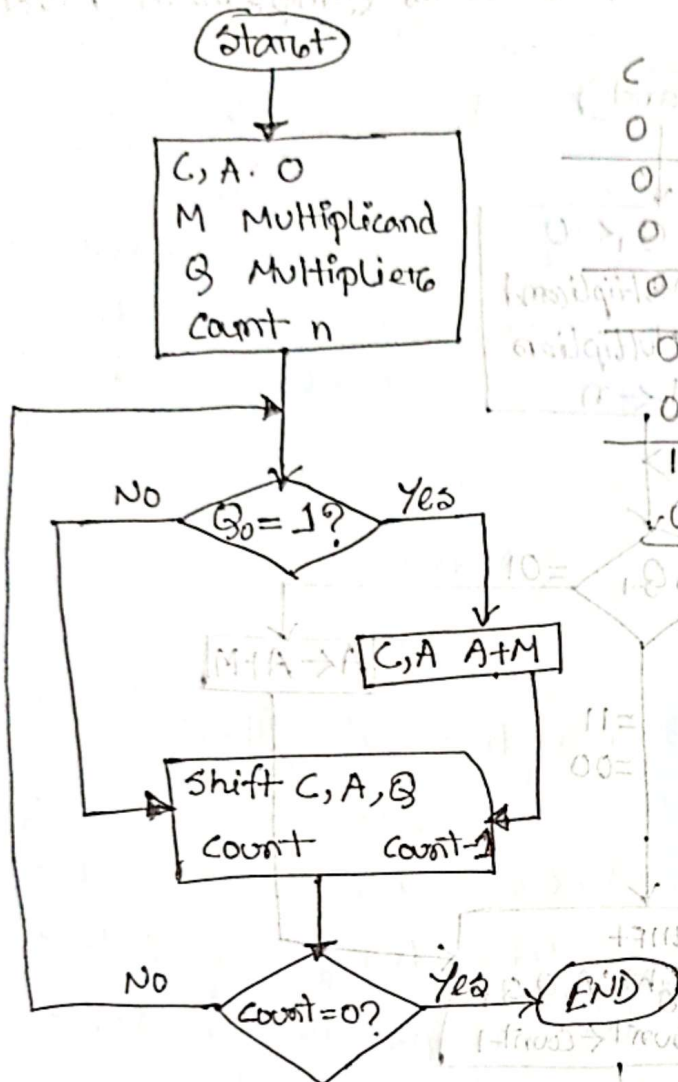 Start
C, A. 0
M Multiplicand
Q Multiplier
Count n
No
Q₀ = 1?
Yes
C, A A+M
Shift C, A, Q
Count Count-1
No
Count = 0?
Yes
END
C
0
0
0
0
0
0
1